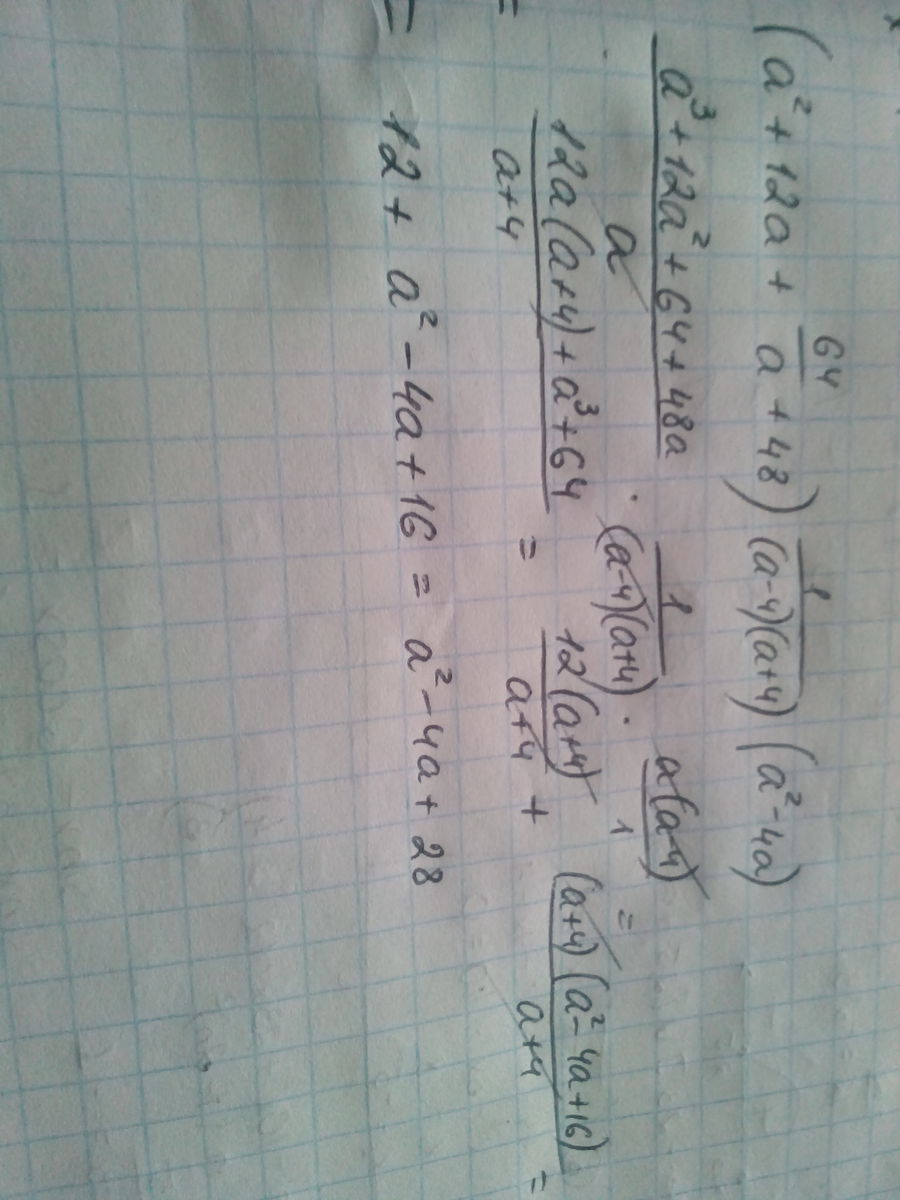 (a² + 12a + 64/a + 48) 1/((a-4)(a+4)) (a² - 4a)
= (a³ + 12a² + 64 + 48a)/a · 1/((a-4)(a+4)) · a(a-4)/1 =
= (12a(a+4) + a³ + 64)/(a+4) = 12(a+4)/(a+4) + (a+4)(a² - 4a + 16)/(a+4) =
= 12 + a² - 4a + 16 = a² - 4a + 28